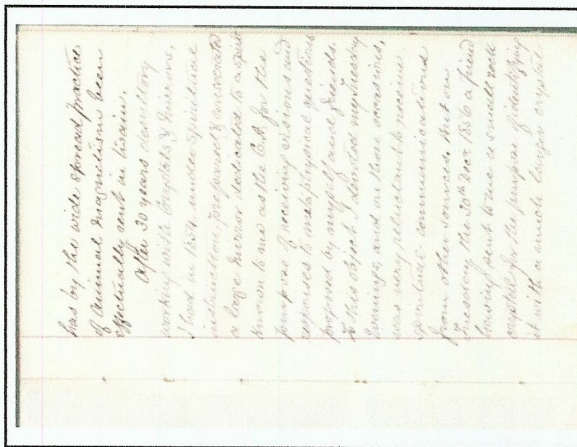 has by the wide spread practice
of animal magnetism been
effectually sent in
After 30 years desultory
working with Crystals & Mirrors,
I had in 1854 under spiritual
instruction, prepared & consecrated
a large mirror dedicated to a spirit
known to me as the C.A. for the
purpose of receiving visions and
responses to metaphysical questions
proposed by myself and friends.
To this object I devoted my Tuesday
Evenings and on these occasions,
was very reluctant to receive
spiritual communications
from other sources. But on
Tuesday the 30th Decr 1856 a friend
having sent to me a small rock
crystal for the purpose of identifying
it with a much larger crystal